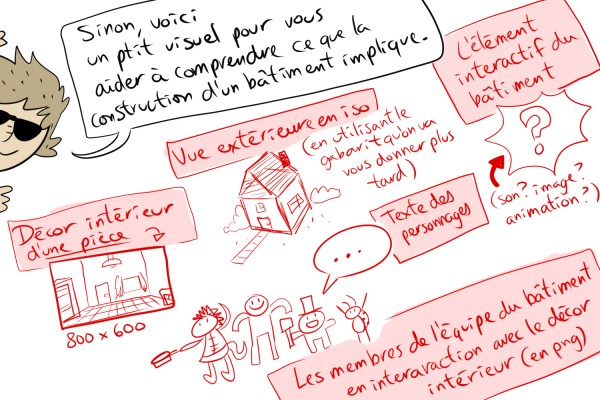 Sinon, voici
un ptit visuel pour vous
aider à comprendre ce que la
construction d'un bâtiment implique.
L'élément
interactif du
bâtiment
?
(son? image?
animation?)
Vue extérieure en iso
(en utilisant le
gabarit qu'on va
vous donner plus
tard)
Décor intérieur
d'une pièce
800 x 600
Texte des
personnages
...
Les membres de l'équipe du bâtiment
en interavaction avec le décor
intérieur (en png)